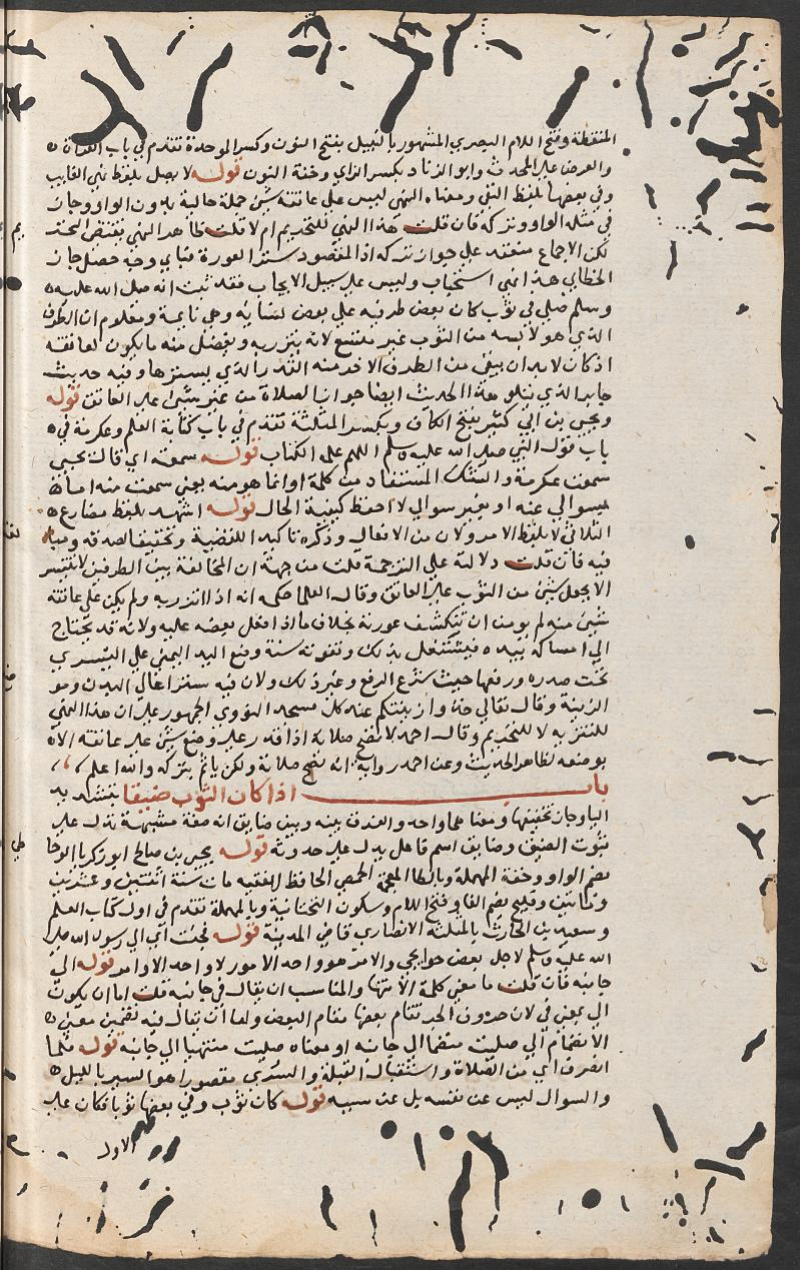 المنقطة وفتح اللام البصري المشهور بالنبيل بفتح النون وكسر الموحدة تقدم في باب القراة
والعرض علي المحدث وابو الزناد بكسر الزاي وخفة النون قوله لا يصل بلفظ نهي الغايب
وفي بعضها بلفظ النفي ومعناه النهي ليس علي عاتقه شي جملة حالية بدون الواو وجاز
في مثله الواو وتركه فان قلت هذا النهي للتحريم ام لا قلت ظاهر النهي يقتضي التحريم
لكن الاجماع منعقد علي جواز تركه اذ المقصود ستر العورة فباي وجه حصل جاز
الخطابي هذا نهي استحباب وليس علي سبيل الايجاب فقد ثبت انه صلي الله عليه
وسلم صلي في ثوب كان بعض طرفيه علي بعض نسايه وهي نايمة ومعلوم ان الطرف
الذي هو لابسه من الثوب غير متسع لان يتزر به ويفضل منه ما يكون لعاتقه
اذ كان لا بد ان يبقي من الطرف الاخر منه القدر الذي يسترها وفيه حديث
جابر الذي يتلو هذا الحديث ايضا جواز الصلاة من غير شي علي العاتق قوله
ويحيي بن ابي كثير بفتح الكاف وبكسر المثلثة تقدم في باب كتابة العلم وعكرمة في
باب قول النبي صلي الله عليه وسلم اللهم علمه الكتاب قوله سمعته اي قال يحيي
سمعت عكرمة والشك المستفاد من كلمة او انما هو منه يعني سمعت منه اما
بسوالي عنه او بغير سوالي لا احفظ كيفية الحال قوله اشهد بلفظ مضارع
الثلاثي لا بلفظ الامر ولا من الافعال وذكره تاكيدا للقضية وتحقيقا لصدقه ومبالغة
فيه فان قلت دلالته علي الترجمة قلت من جهة ان المخالفة بين الطرفين لا تتيسر
الا بجعل شي من الثوب علي العاتق وقال العلما حكمه انه اذا اتزر به ولم يكن علي عاتقه
شي منه لم يومن ان تنكشف عورته بخلاف ما اذا جعل بعضه عليه ولانه قد يحتاج
الي امساكه بيده فيشتغل بذلك وتفوته سنة وضع اليد اليمني علي اليسري
تحت صدره ورفعها حيث شرع الرفع وغير ذلك ولان فيه سترا عالي البدن وموضع
الزينة وقال تعالي خذوا زينتكم عند كل مسجد النووي الجمهور علي ان هذا النهي
للتنزيه لا للتحريم وقال احمد لا تصح صلاته اذا قدر علي وضع شي علي عاتقه الا
بوضعه لظاهر الحديث وعن احمد رواية انه تصح صلاته ولكن ياثم بتركه والله اعلم
باب اذا كان الثوب ضيقا بتشديد
اليا وجاز تخفيفها ومعناهما واحد والفرق بينه وبين ضايق انه صفة مشبهة تدل علي
ثبوت الضيق وضايق اسم فاعل يدل علي حدوثه قوله يحيي بن صالح ابو زكريا الوحاظي
بضم الواو وخفة المهملة وبالظا المعجمة الحمصي الحافظ الفقيه مات سنة اثنتين وعشرين
ومائتين وفليح بضم الفا وفتح اللام وسكون التحتانية وبالمهملة تقدم في اول كتاب العلم
وسعيد بن الحارث بالمثلثة الانصاري قاضي المدينة قوله فجئت اي الي رسول الله صلي
الله عليه وسلم لاجل بعض حوايجي والامر هو واحد الامور لا واحد الاوامر قوله الي
جانبه فان قلت ما معني كلمة الانتها والمناسب ان يقال في جانبه قلت اما ان يكون
الي بمعني في لان حروف الجر تقام بعضها مقام البعض واما ان يقال فيه تضمين معني
الانضمام اي صليت منضما الي جانبه او معناه صليت منتهيا الي جانبه قوله فلما
انصرف اي من الصلاة واستقبال القبلة والسري مقصورا هو السير بالليل
والسوال ليس عن نفسه بل عن سببه قوله كان ثوب وفي بعضها ثوبا فكان علي
الاول